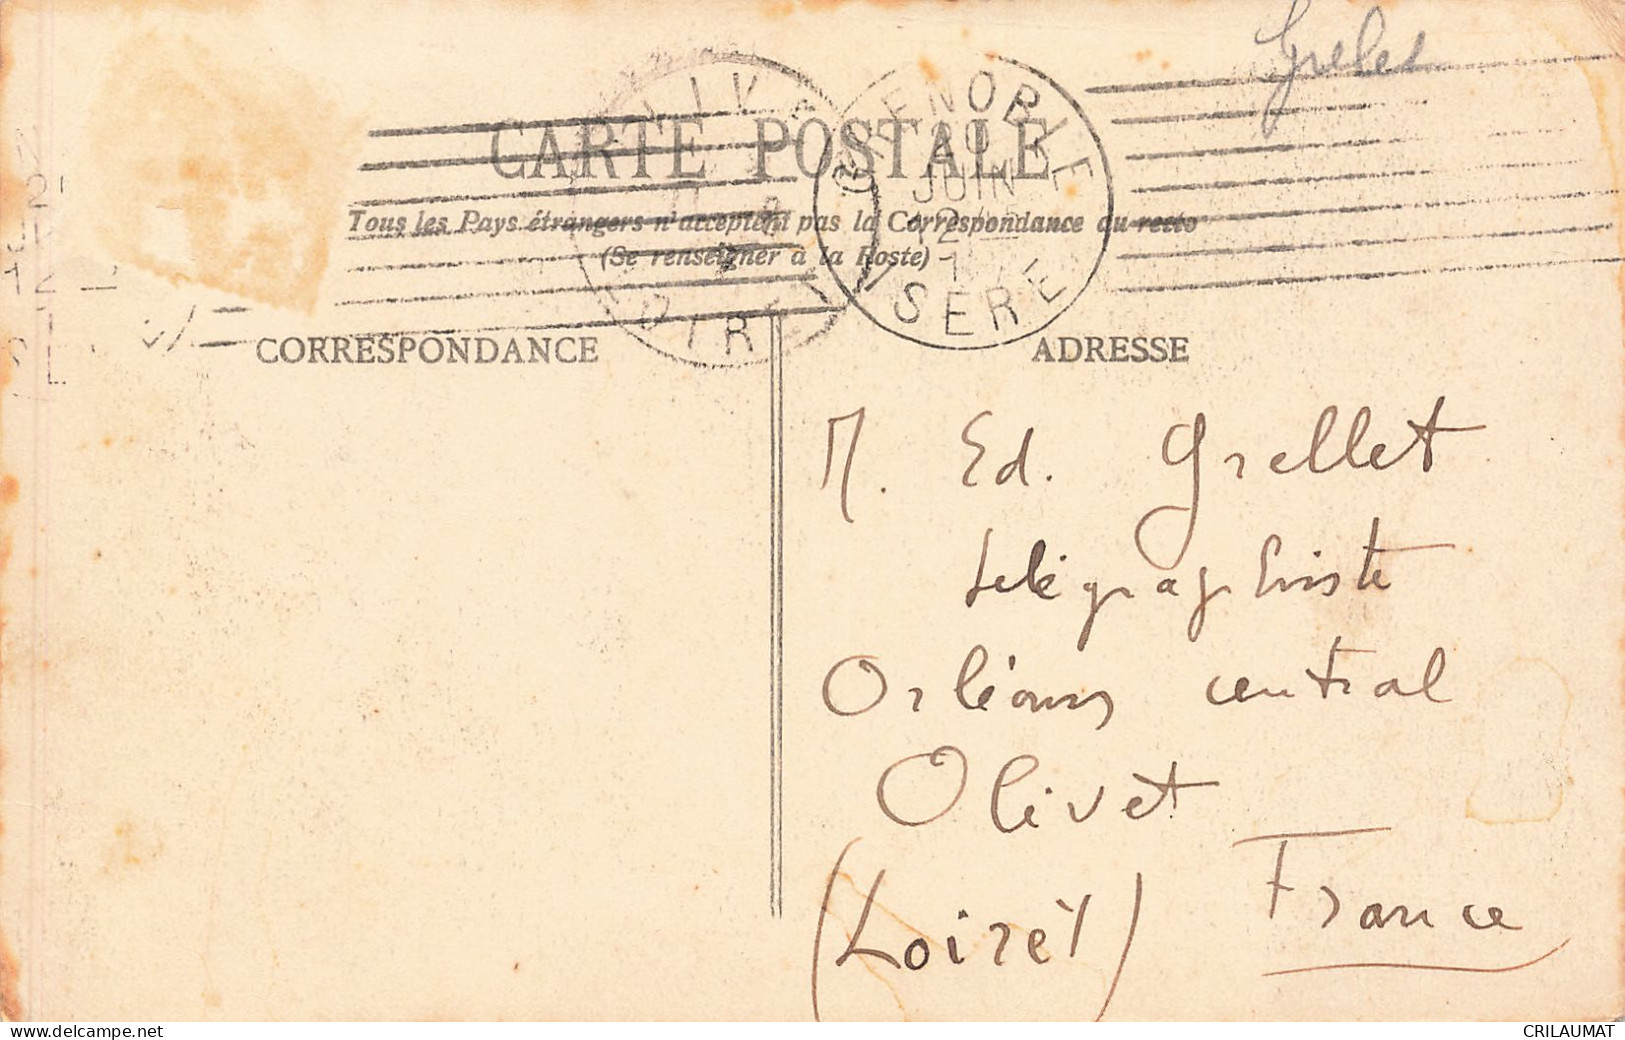 Greles
CARTE POSTALE
GRENOBLE
20
JUIN
12
ISERE
Tous les Pays étrangers n'acceptent pas la Correspondance au recto
(Se renseigner à la Poste)
CORRESPONDANCE
ADRESSE
M. Ed. Grellet
télégraphiste
Orléans central
Olivet
(Loiret) France
www.delcampe.net
CRILAUMAT